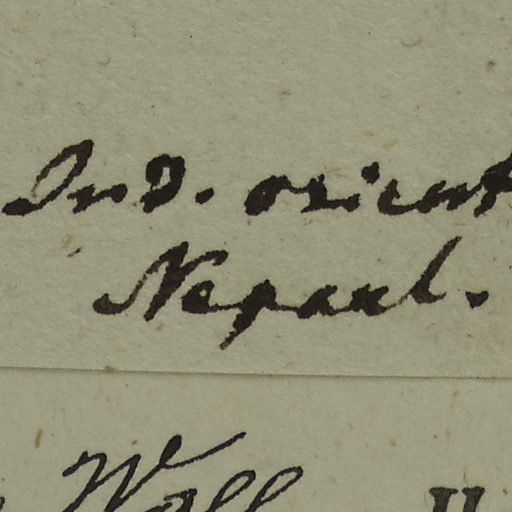 Ind. orient
Nepaul.
Wall